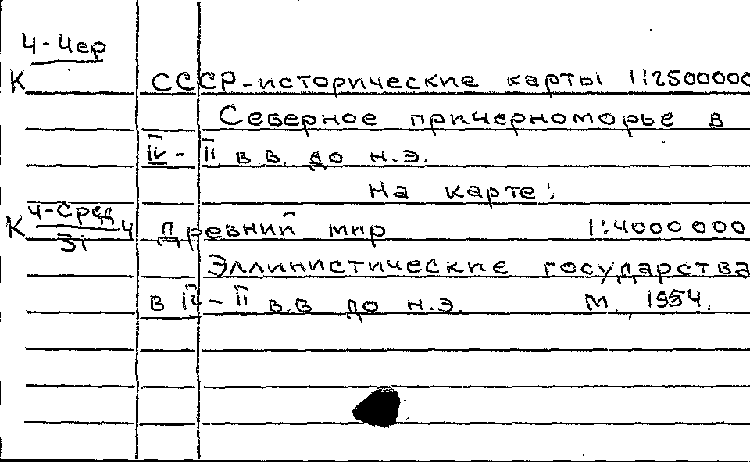 Ч-Чер
К СССР-исторические карты 1:2500000
Северное причерноморье в
IV-II в.в. до н.э.
На карте:
К Ч-Сред.Ч
31
Древний мир 1:4000000
Эллинистические государства
в IV-II в.в до н.э. М. 1954.